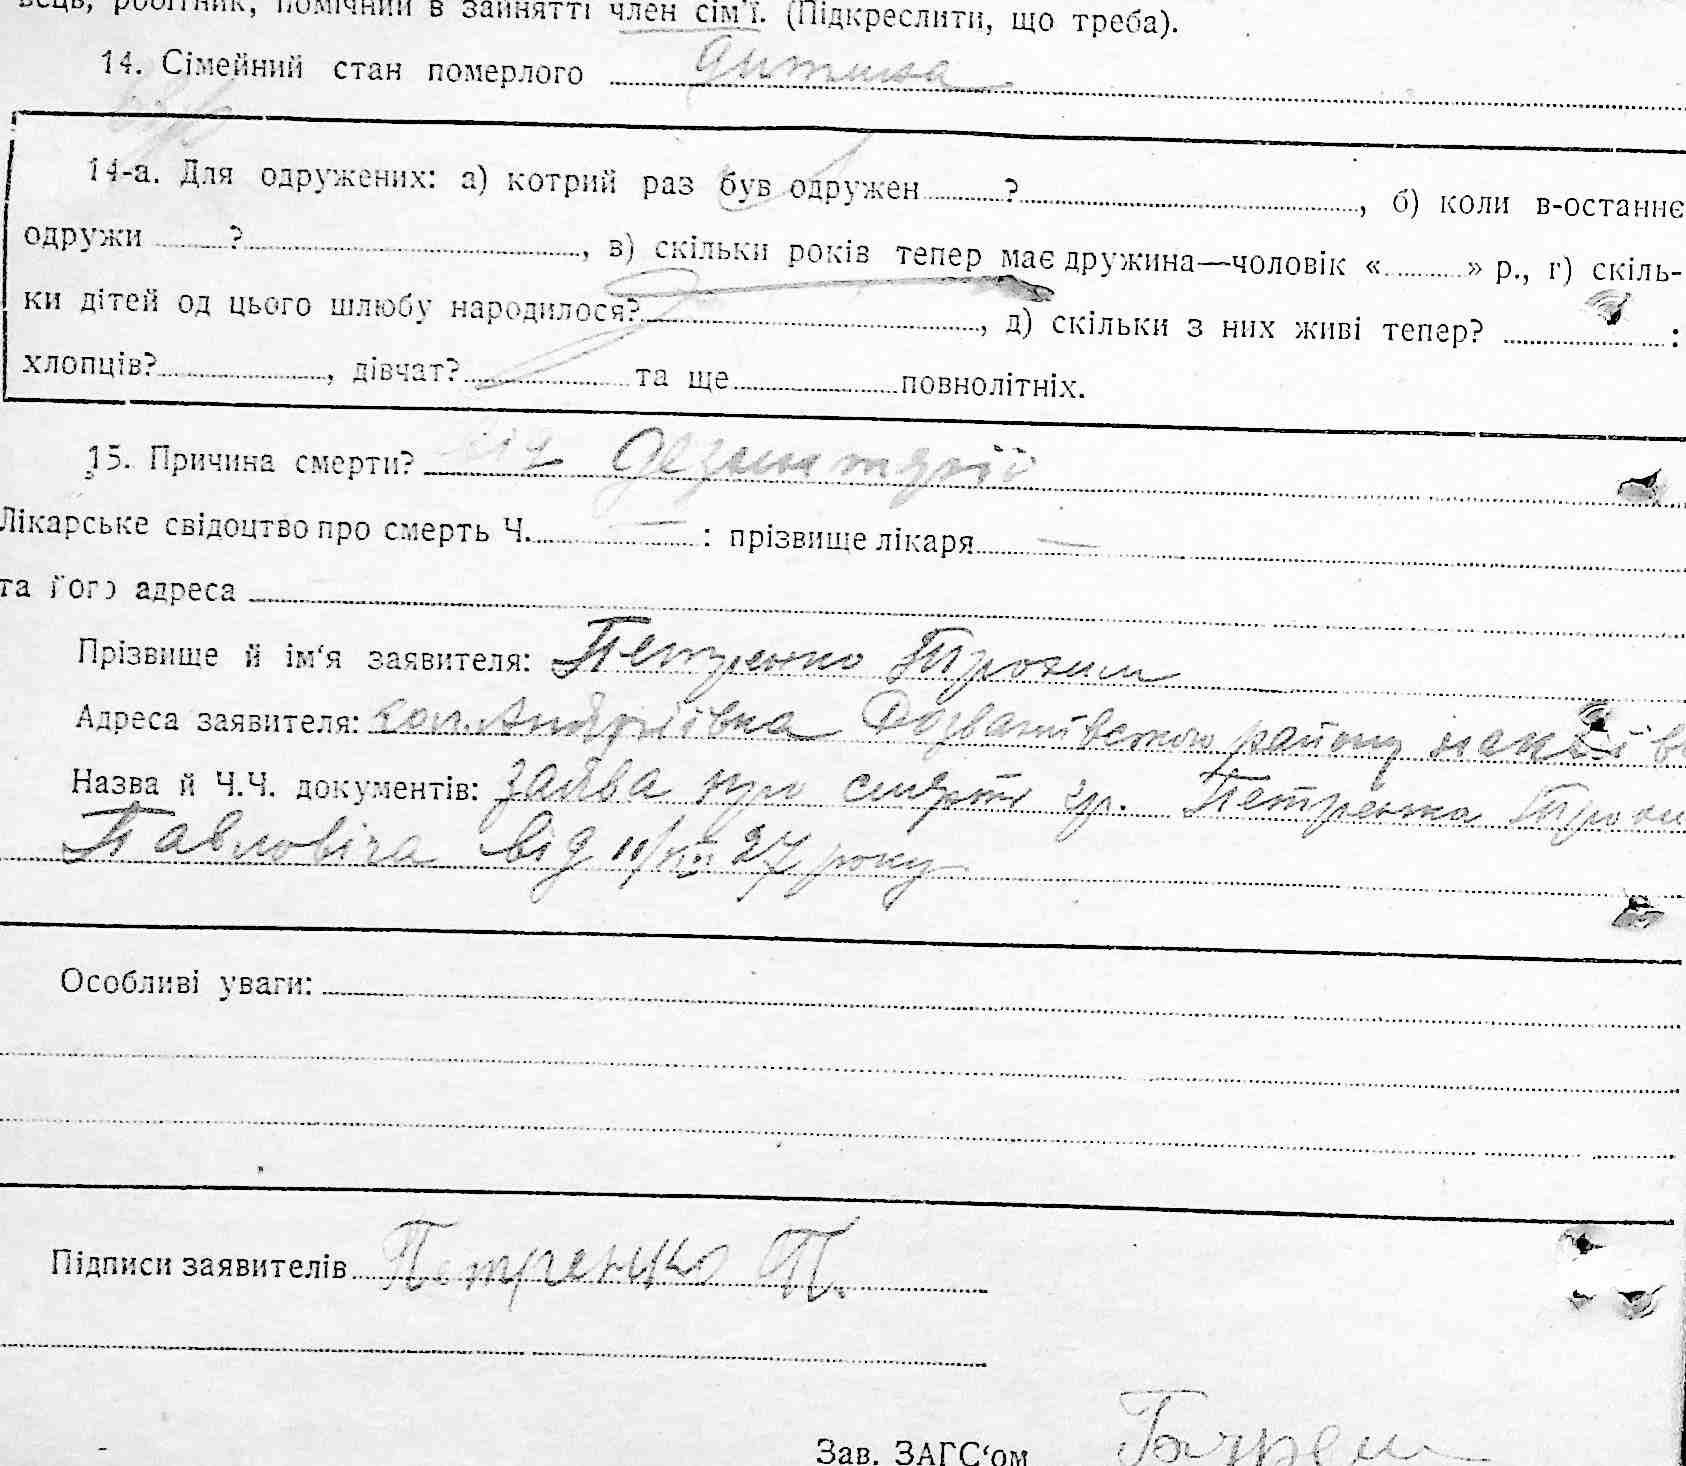 вець, робітник, помічний в зайнятті член сім'ї. (Підкреслити, що треба).
14. Сімейний стан померлого дитина
14-а. Для одружених: а) котрий раз був одружен ? , б) коли в-останнє
одружи ? , в) скільки років тепер має дружина—чоловік « » р., г) скіль-
ки дітей од цього шлюбу народилося? , д) скільки з них живі тепер? :
хлопців? , дівчат? та ще повнолітніх.
15. Причина смерти? від дезентерії
Лікарське свідоцтво про смерть Ч. — : прізвище лікаря —
та його адреса
Прізвище й ім'я заявителя: Петренко Трохим
Адреса заявителя: Андріївка району
Назва й Ч.Ч. документів: заява про смерть гр. Петренка
Павловіча від 11/VII 27 року
Особливі уваги:
Підписи заявителів Петренко Т.
Зав. ЗАГС'ом